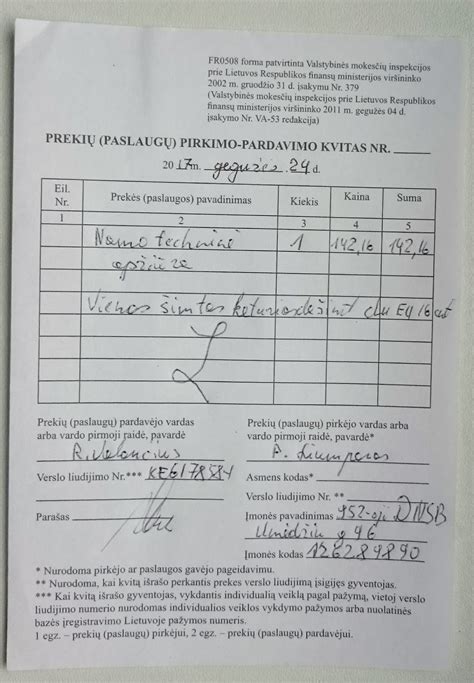 FR0508 forma patvirtinta Valstybinės mokesčių inspekcijos
prie Lietuvos Respublikos finansų ministerijos viršininko
2002 m. gruodžio 31 d. įsakymu Nr. 379
(Valstybinės mokesčių inspekcijos prie Lietuvos Respublikos
finansų ministerijos viršininko 2011 m. gegužės 04 d.
įsakymo Nr. VA-53 redakcija)
PREKIŲ (PASLAUGŲ) PIRKIMO-PARDAVIMO KVITAS NR.
2017 m. gegužės 24 d.
Eil. Nr. Prekės (paslaugos) pavadinimas Kiekis Kaina Suma
1 2 3 4 5
Namo techninė 1 142,16 142,16
apžiūra
Vienas šimtas keturiasdešimt du EU 16 ct
Prekių (paslaugų) pardavėjo vardas
arba vardo pirmoji raidė, pavardė
R. Valančius
Verslo liudijimo Nr.***
Parašas
Prekių (paslaugų) pirkėjo vardas arba
vardo pirmoji raidė, pavardė*
A.
Asmens kodas*
Verslo liudijimo Nr. **
Įmonės pavadinimas 952-oji DNSB
g 46
Įmonės kodas 126289890
* Nurodoma pirkėjo ar paslaugos gavėjo pageidavimu.
** Nurodoma, kai kvitą išrašo perkantis prekes verslo liudijimą įsigijęs gyventojas.
*** Kai kvitą išrašo gyventojas, vykdantis individualią veiklą pagal pažymą, vietoj verslo
liudijimo numerio nurodomas individualios veiklos vykdymo pažymos arba nuolatinės
bazės įregistravimo Lietuvoje pažymos numeris.
1 egz. – prekių (paslaugų) pirkėjui, 2 egz. – prekių (paslaugų) pardavėjui.